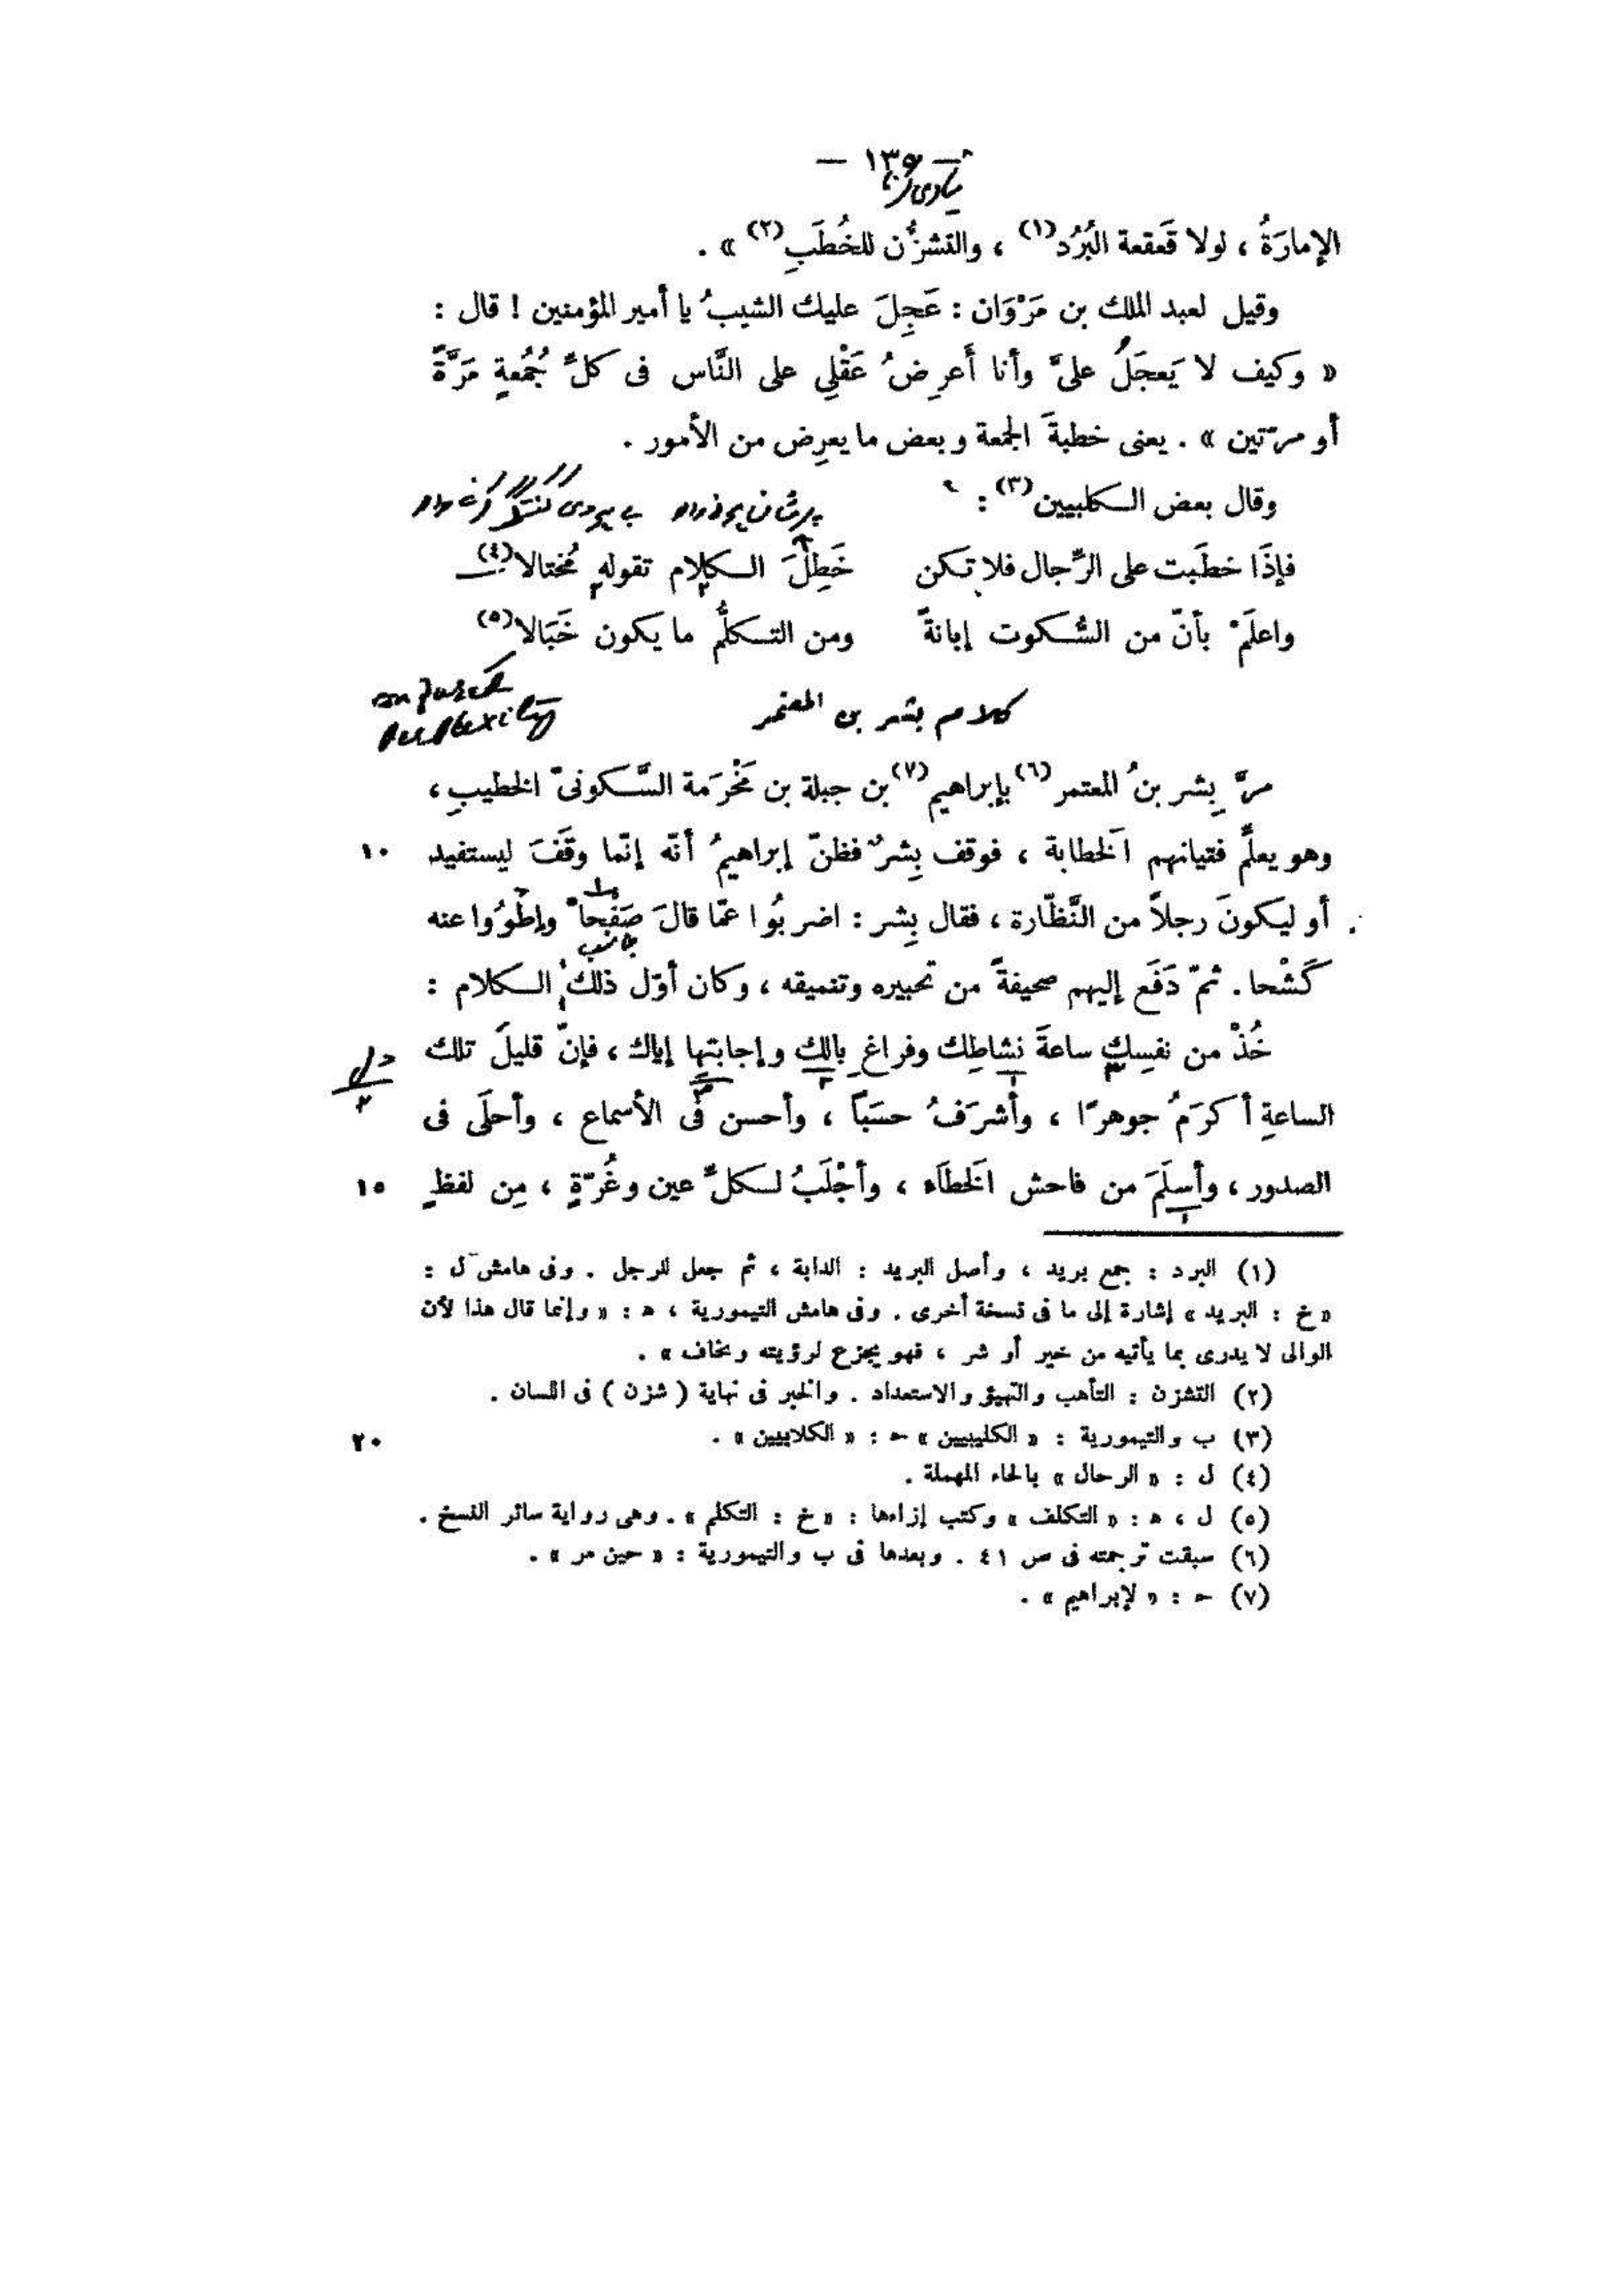 الإمارَةُ ، لولا قَعقعة البُرُد(١) ، والتشزُّن للخُطَبِ(٢) » .
وقيل لعبد الملك بن مَرْوَان : عَجِلَ عليك الشيبُ يا أمير المؤمنين ! قال :
« وكيف لا يَعجَلُ علىَّ وأنا أَعرِضُ عَقْلِي على النَّاس فى كلِّ جُمُعةٍ مَرَّةً
أو مرّتين » . يعنى خطبةَ الجمعة وبعض ما يعرِض من الأمور .
وقال بعض الكلبيين(٣) :
فإذَا خطَبت على الرِّجال فلا تكن خَطِلَ الكلام تقوله مُختالا(٤)
واعلَمْ بأنّ من السُّكوت إبانةً ومن التكلُّم ما يكون خَبَالا(٥)
كلام بشر بن المعتمر
مرَّ بِشر بنُ المعتمر(٦) بإبراهيم(٧) بن جبلة بن مَخْرَمة السَّكونىّ الخطيبِ ،
وهو يعلِّم فتيانهم الخَطابة ، فوقف بِشرٌ فظنّ إبراهيمُ أنّه إنّما وقَفَ ليستفيد ١٠
أو ليكونَ رجلاً من النَّظّارة ، فقال بِشر : اضربُوا عمّا قالَ صَفْحاً واطْوُوا عنه
كَشْحا . ثمّ دَفَع إليهم صحيفةً من تحبيره وتنميقه ، وكان أوّل ذلك الكلام :
خُذْ من نفسِك ساعةَ نشاطِك وفراغِ بالِك وإجابتها إياك ، فإنّ قليلَ تلك
الساعةِ أكرَمُ جوهرًا ، وأشرَفُ حسَباً ، وأحسن فى الأسماع ، وأحلَى فى
الصدور ، وأسلَمَ من فاحش الخَطَاء ، وأجْلَبُ لكلِّ عين وغُرّةٍ ، مِن لفظٍ ١٥
(١) البرد : جمع بريد ، وأصل البريد : الدابة ، ثم جعل للرجل . وفى هامش ل :
« خ : البريد » إشارة إلى ما فى نسخة أخرى . وفى هامش التيمورية ، ه : « وإنما قال هذا لأن
الوالى لا يدرى بما يأتيه من خير أو شر ، فهو يجزع لرؤيته ويخاف » .
(٢) التشزن : التأهب والتهيؤ والاستعداد . والخبر فى نهاية ( شزن ) فى اللسان .
(٣) ب والتيمورية : « الكليبيين » ح : « الكلابيين » . ٢٠
(٤) ل : « الرحال » بالحاء المهملة .
(٥) ل ، ه : « التكلف » وكتب إزاءها : « خ : التكلم » . وهى رواية سائر النسخ .
(٦) سبقت ترجمته فى ص ٤١ . وبعدها فى ب والتيمورية : « حين مر » .
(٧) ح : « لإبراهيم » .